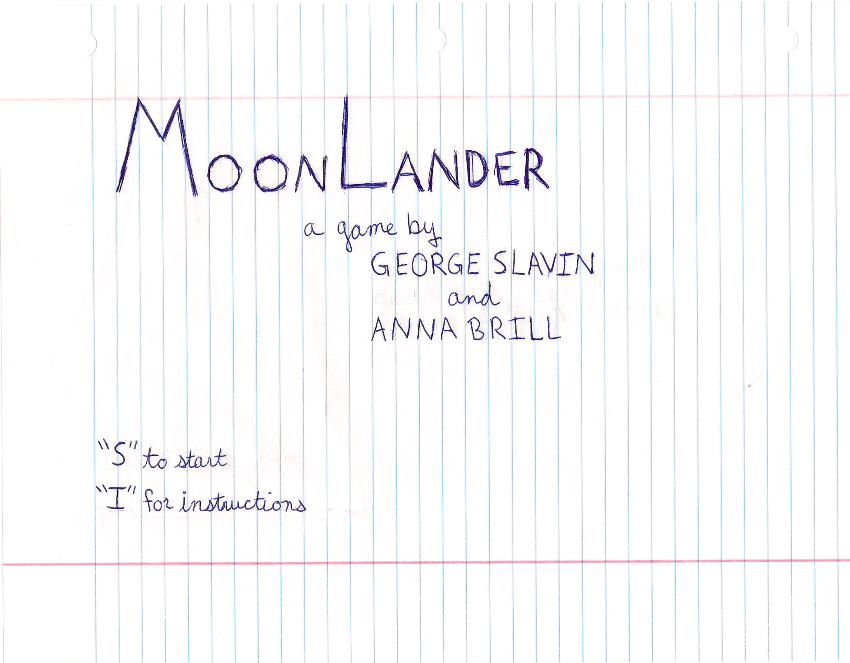 MOONLANDER
a game by
GEORGE SLAVIN
and
ANNA BRILL
"S" to start
"I" for instructions